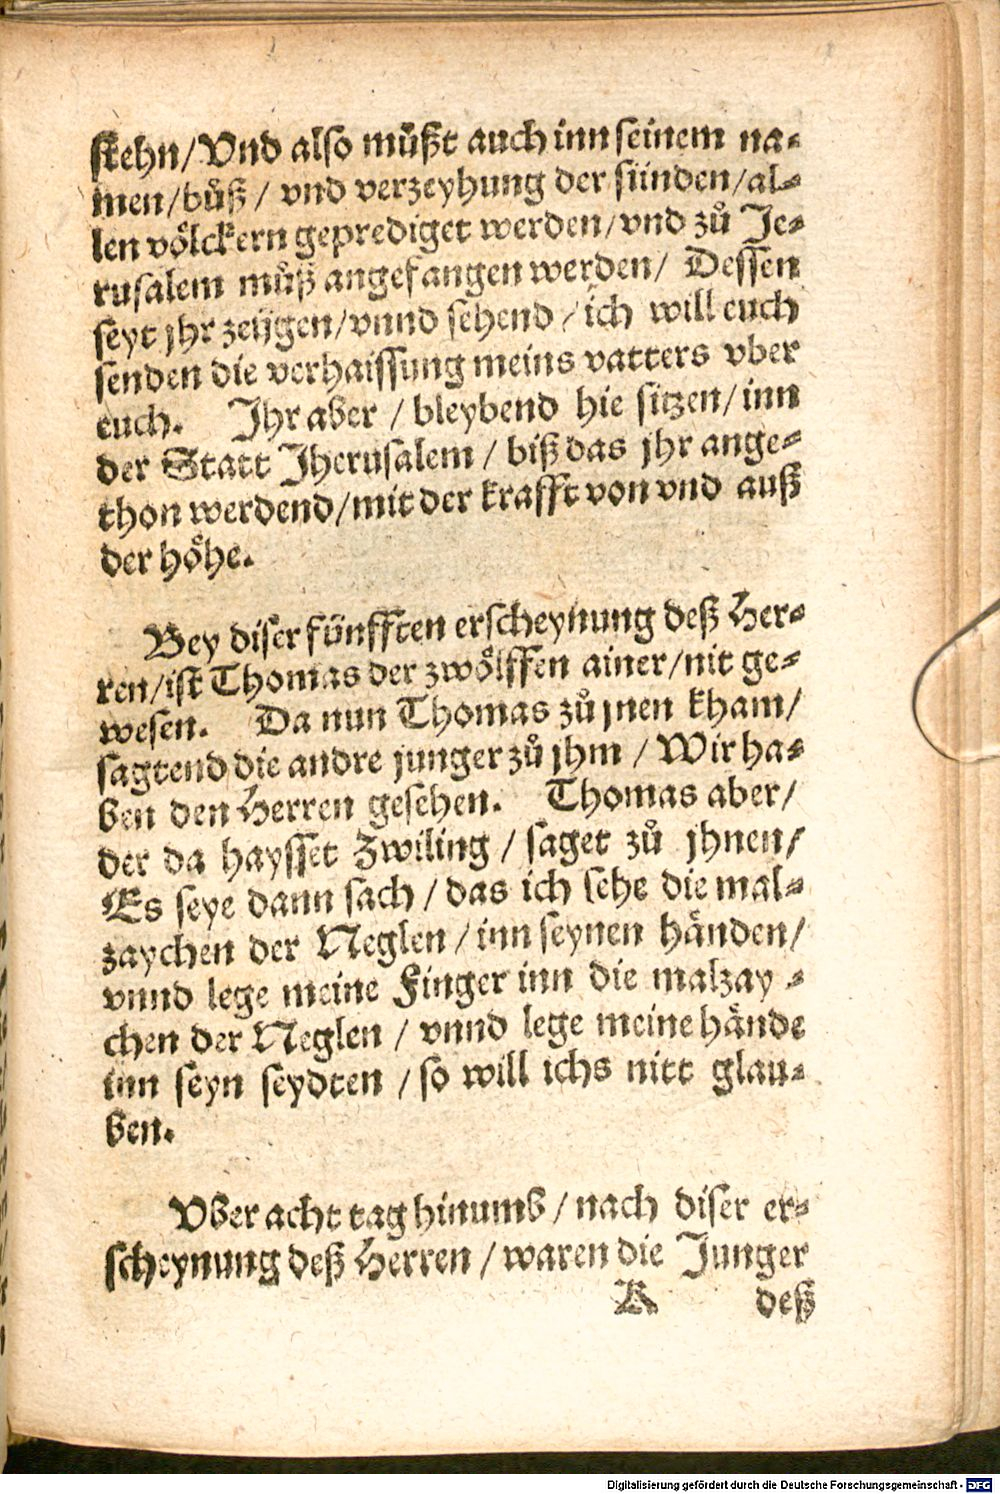 stehn/Vnd also můßt auch inn seinem na-
men/bůß / vnd verzeyhung der sünden/al-
len völckern geprediget werden/vnd zů Je-
rusalem můß angefangen werden/ Dessen
seyt jhr zeügen/vnnd sehend / ich will euch
senden die verhaissung meins vatters vber
euch. Jhr aber / bleybend hie sitzen/inn
der Statt Jherusalem / biß das jhr ange-
thon werdend/mit der krafft von vnd auß
der höhe.
Bey diser fünfften erscheynung deß Her-
ren/ist Thomas der zwölffen ainer/nit ge-
wesen. Da nun Thomas zů jnen kham/
sagtend die andre junger zů jhm / Wir ha-
ben den Herren gesehen. Thomas aber/
der da haysset Zwiling / saget zů jhnen/
Es seye dann sach / das ich sehe die mal-
zaychen der Neglen / inn seynen händen/
vnnd lege meine Finger inn die malzay-
chen der Neglen / vnnd lege meine hände
inn seyn seydten / so will ichs nitt glau-
ben.
Vber acht tag hinumb / nach diser er-
scheynung deß Herren / waren die Junger
K deß
Digitalisierung gefördert durch die Deutsche Forschungsgemeinschaft - DFG